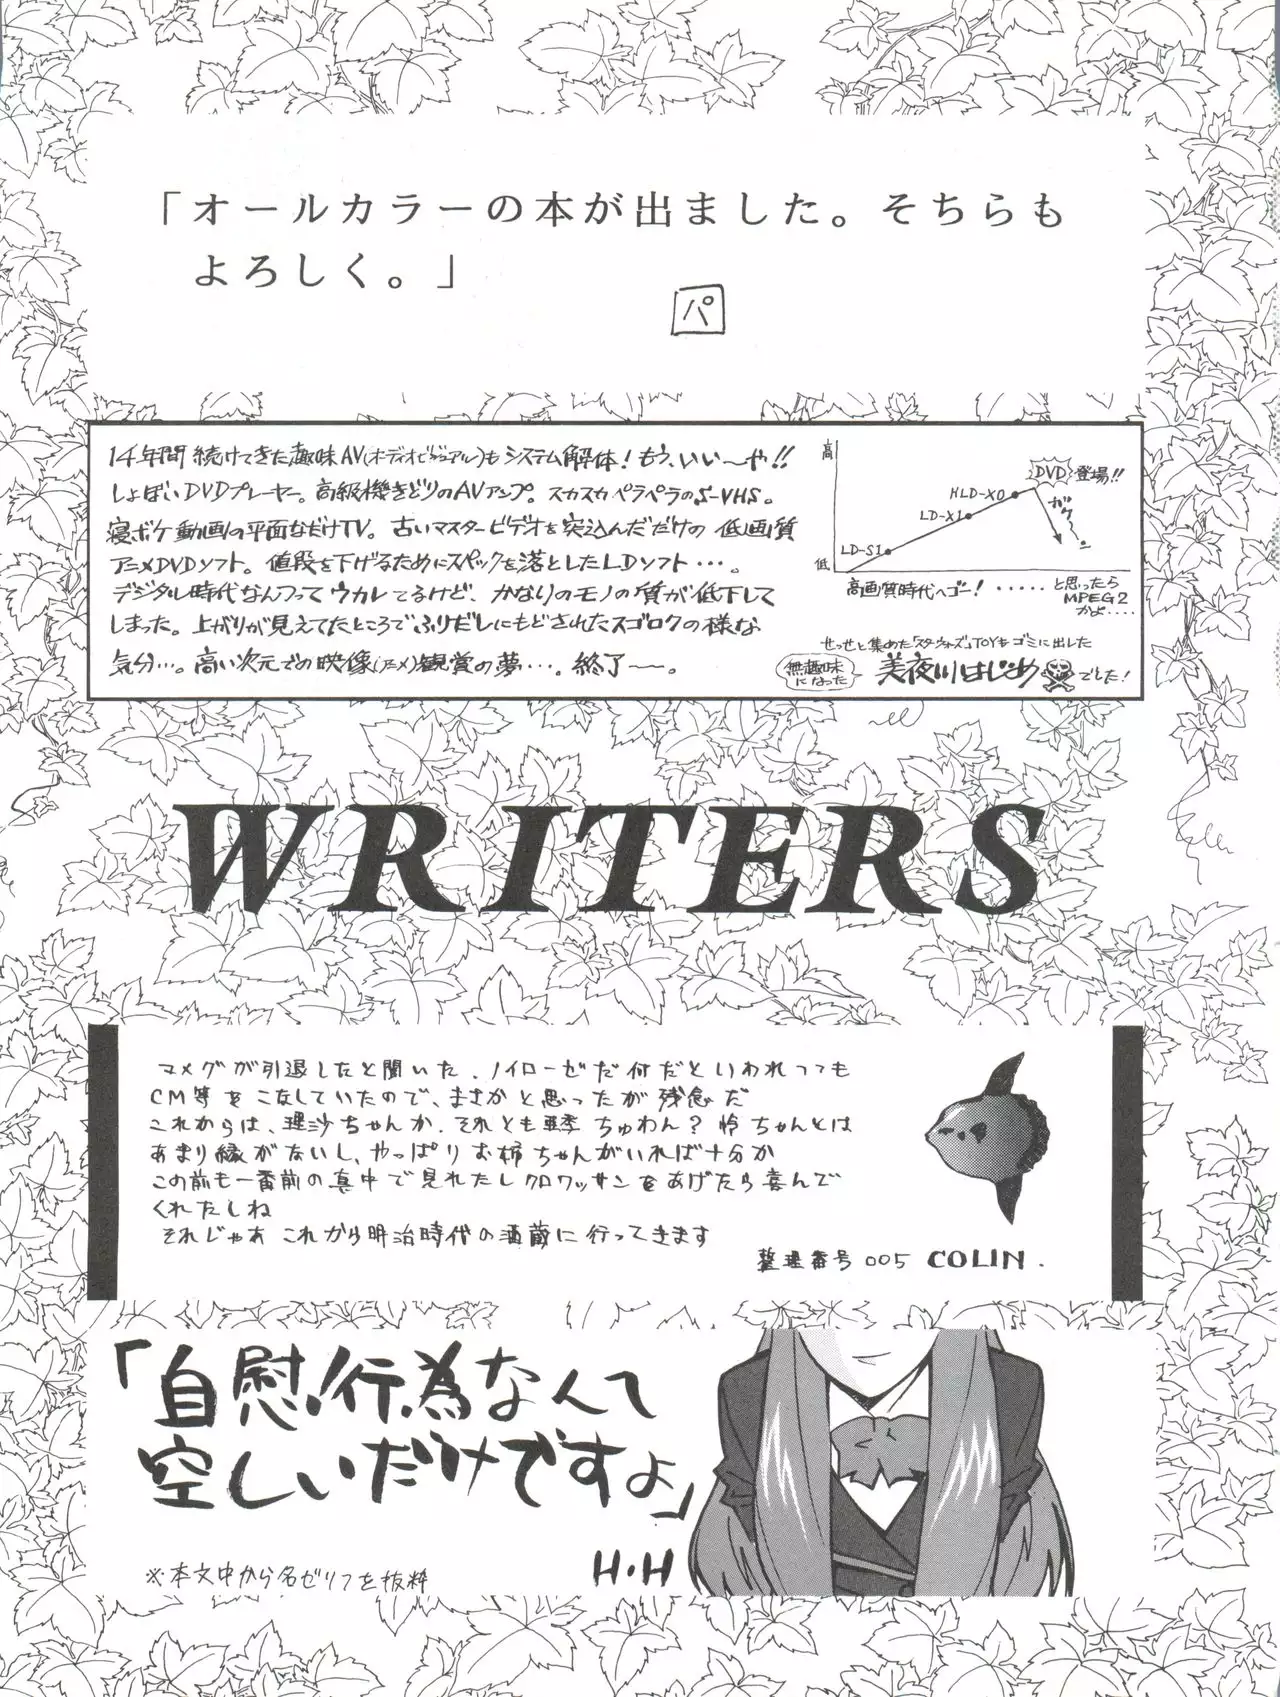 「オールカラーの本が出ました。そちらも
よろしく。」
パ
14年間続けてきた趣味AV(オーディオビジュアル)もシステム解体!もう、いい〜や!!
しょぼいDVDプレーヤー。高級機きどりのAVアンプ。スカスカペラペラのS-VHS。
寝ボケ動画の平面なだけTV。古いマスタービデオを突込んだだけの低画質
アニメDVDソフト。値段を下げるためにスペックを落としたLDソフト・・・。
デジタル時代なんつってウカレてるけど、かなりのモノの質が低下して
しまった。上がりが見えてたところでふりだしにもどされたスゴロクの様な
気分…。高い次元での映像(アニメ)観賞の夢・・・。終了〜。
高
低
LD-S1
LD-X1
HLD-X0
DVD登場!!
ガク〜
高画質時代へゴー!・・・・・と思ったら
MPEG2
かよ・・・・
せっせと集めた「スターウォーズ」TOYもゴミに出した
無趣味
になった
美夜川はじめでした!
WRITERS
マメグが引退したと聞いた.ノイローゼだ何だといわれつつも
CM等をこなしていたので、まさかと思ったが残念だ
これからは、理沙ちゃんか、それとも亜季ちゅわん?怜ちゃんとは
あまり縁がないし、やっぱりお姉ちゃんがいれば十分か
この前も一番前の真中で見れたしクロワッサンをあげたら喜んで
くれたしね
それじゃあこれから明治時代の酒蔵に行ってきます
整理番号 005 COLIN.
「自慰行為なんて
空しいだけですよ」
H・H
※本文中から名ゼリフを抜粋